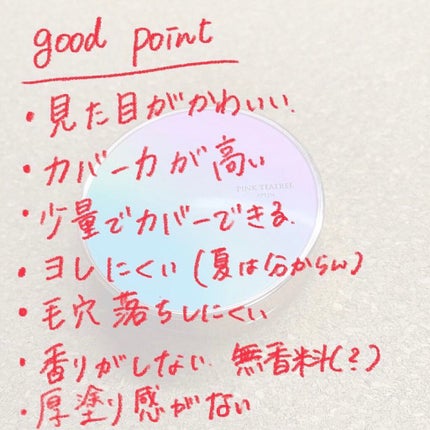 good point
・見た目がかわいい.
・カバー力が高い
・少量でカバーできる.
PINK TEATREE
・ヨレにくい (夏は分からん)
・毛穴落ちしにくい
・香りがしない. 無香料(?)
・厚塗り感がない